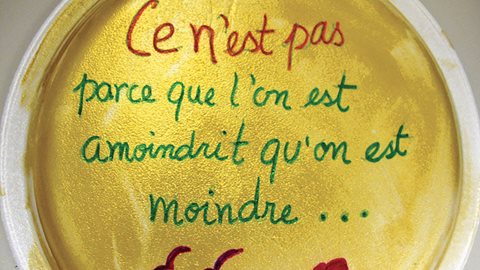 Ce n'est pas
parce que l'on est
amoindrit qu'on est
moindre ...